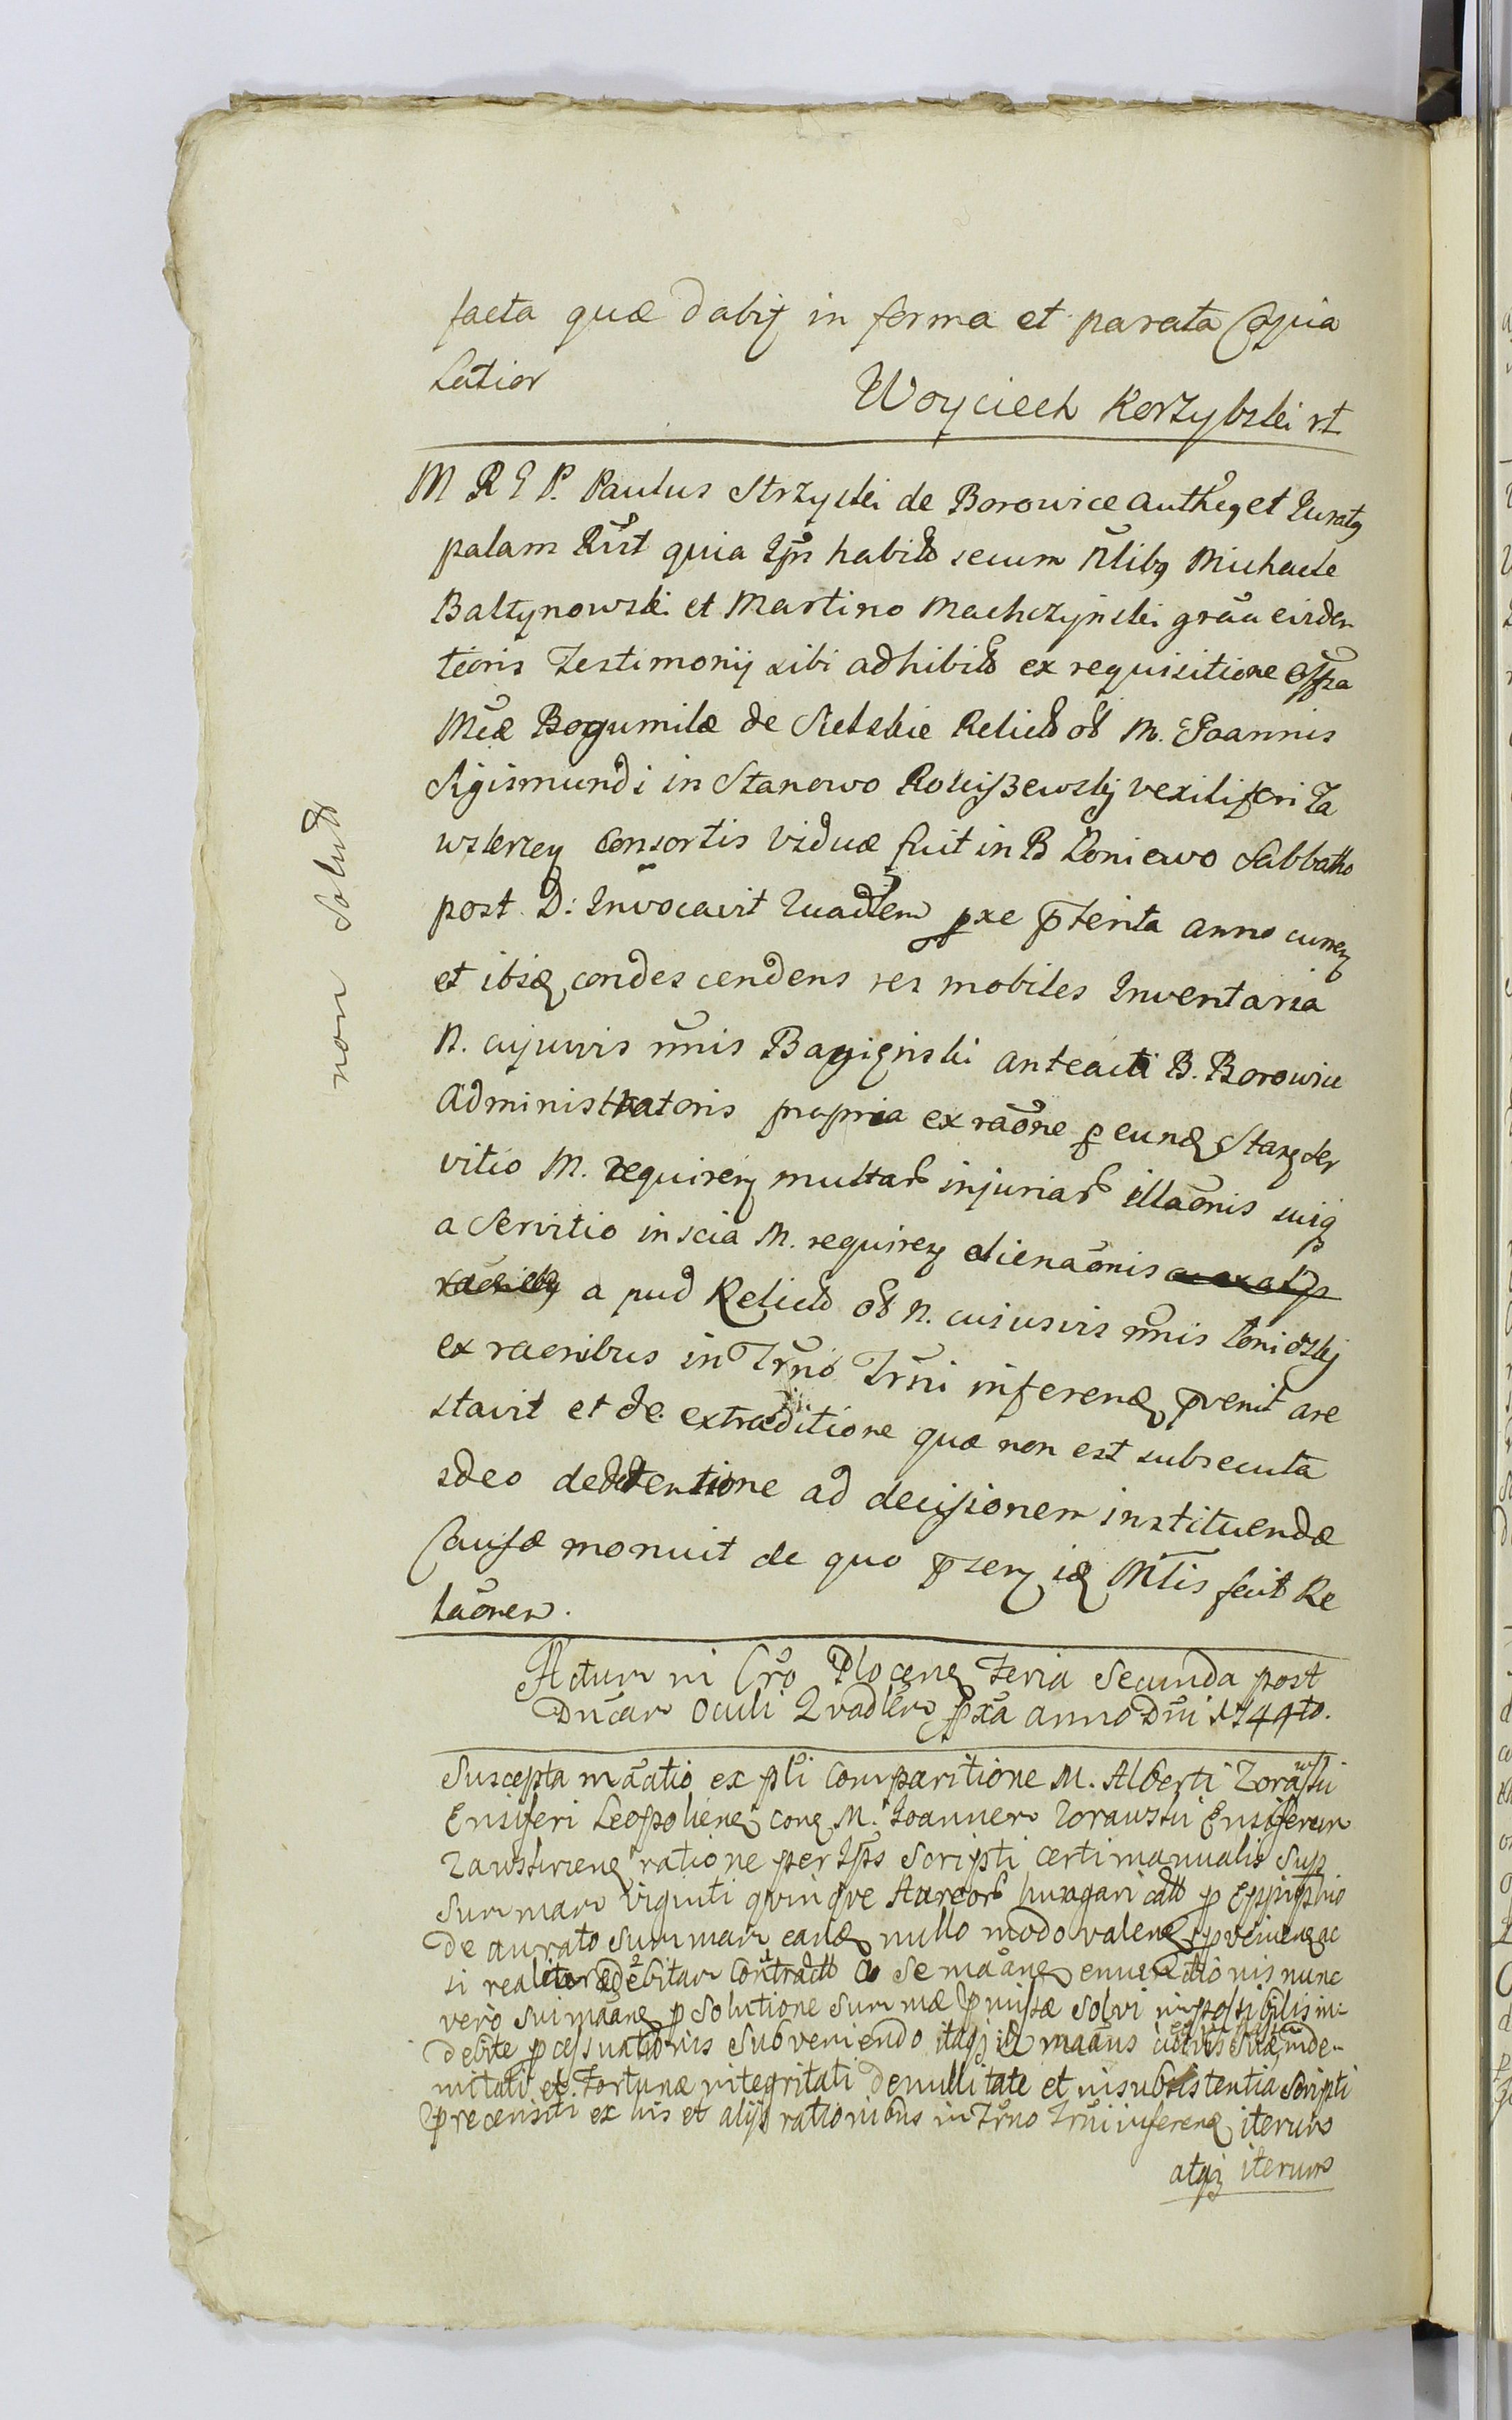 facta quæ dabit in forma et parata Copia
Latior
Woyciech Korzybski rt
M R G P. Paulus Strzyski de Borowice authẽ et Juratg
palam Rũt quia Ipẽ habito secum Nlibg Michaele
Baltynowski et Martino Machczynski grãa eviden
tioris Testimonij sibi adhibito ex requisitione
Mcæ Bogumilæ de Sielskie Relictæ ol M. Joannis
Sigismundi in Stanowo Rosciszewskj vexiliferi Za
wskrzen Consortis viduæ fuit in B Koniewo Sabbatho
post D: Invocavit Quadlem pxe pterita anno curren
et ibidẽ condescendens res mobiles Inventaria
N. cujusvis nñis Bagięnski anteacti B. Borowice
administratoris propria ex raõne per eundẽ Stan Ser
vitio M. requiren multar injuriar illaõnis suiq
a Servitio inscia M. requiren alienaõnis
a pud Relicto ol N. cuiusvis nñis
ex raenibus in Trño Trñi inferendẽ pvenit are
stavit et de extraditione quæ non est subsecuta
adeo de detentione ad decisionem instituendæ
Causæ monuit de quo psen idẽ Mtis fecit Re
laõnem.
non Solut
Actum in Cro Plocenẽ Feria Secunda post
Dnĩcam Oculi Qvadlem pxã anno Dnĩ 1744to.
Suscepta mãatio ex psli comparitione M. Alberti Zorawski
Ensiferi Leopolienẽ con M. Joannem Zorawski Ensiferum
Zawskrzenẽ ratione per Ips Scripti certi manualis Sup
Summam viginti qvinqve Aureor hungaricall p Ephiphio
de aurato Summam eandẽ nullo modo valenẽ pveniend ac
si realiter debitam contracto a se mãanẽ nunc
vero Sui mãanẽ p solutione Summæ pmissæ solvi impossibilis in-
debite pcessuationis Subveniendo itaq id mãans inde-
nitati et Fortunæ integritati de nullitate et insubsistentia Scripti
precensiti ex his et alijs rationibus in Trño Trñi inferend iterum
atq iterum